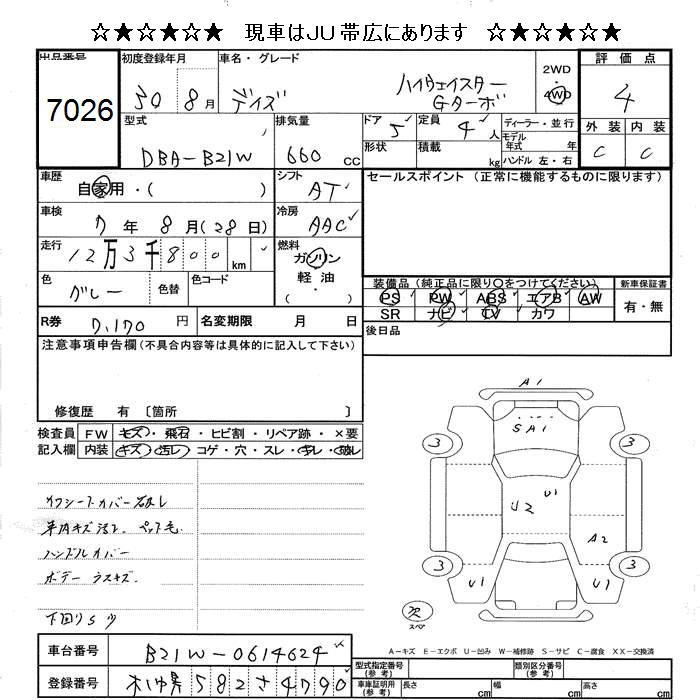 ☆★☆★☆★ 現車はJU帯広にあります ☆★☆★☆★
出品番号
7026
初度登録年月
30 8月
車名・グレード
デイズ
ハイウェイスター
Gターボ
2WD
・
4WD
評価点
4
外装 内装
C C
型式
DBA-B21W
排気量
660 cc
ドア 5
定員 4人
形状
積載 kg
ディーラー・並行
モデル年式 年
ハンドル 左・右
車歴
自家用・( )
シフト
AT
セールスポイント(正常に機能するものに限ります)
車検
7年 8月(28日)
冷房
AAC
走行
12万3千800km
燃料
ガソリン
軽・油
(・)
色
グレー
色替
色コード
装備品(純正品に限り○をつけてください) 新車保証書
PS PW ABS エアB AW
SR ナビ TV カワ
有・無
R券 7,170円
名変期限 月 日
後日品
注意事項申告欄(不具合内容等は具体的に記入して下さい)
修復歴 有 〔箇所 〕
検査員 FW キズ・飛石・ヒビ割・リペア跡・×要
記入欄 内装 キズ・汚レ・コゲ・穴・スレ・キレ・破レ
カワシートカバー 破レ
車内キズ 汚レ ペット毛
ハンドルカバー
ボデー ウスキズ
下回り S 少
A1
SA1
3 3
U2 U1
A2
3 3
U1 U1
欠
スペア
A-キズ E-エクボ U-凹み W-補修跡 S-サビ C-腐食 XX-交換済
車台番号 B21W-0614624
登録番号 582さ4790
型式指定番号(参考)
類別区分番号(参考)
車庫証明用(参考)
長さ cm 幅 cm 高さ cm